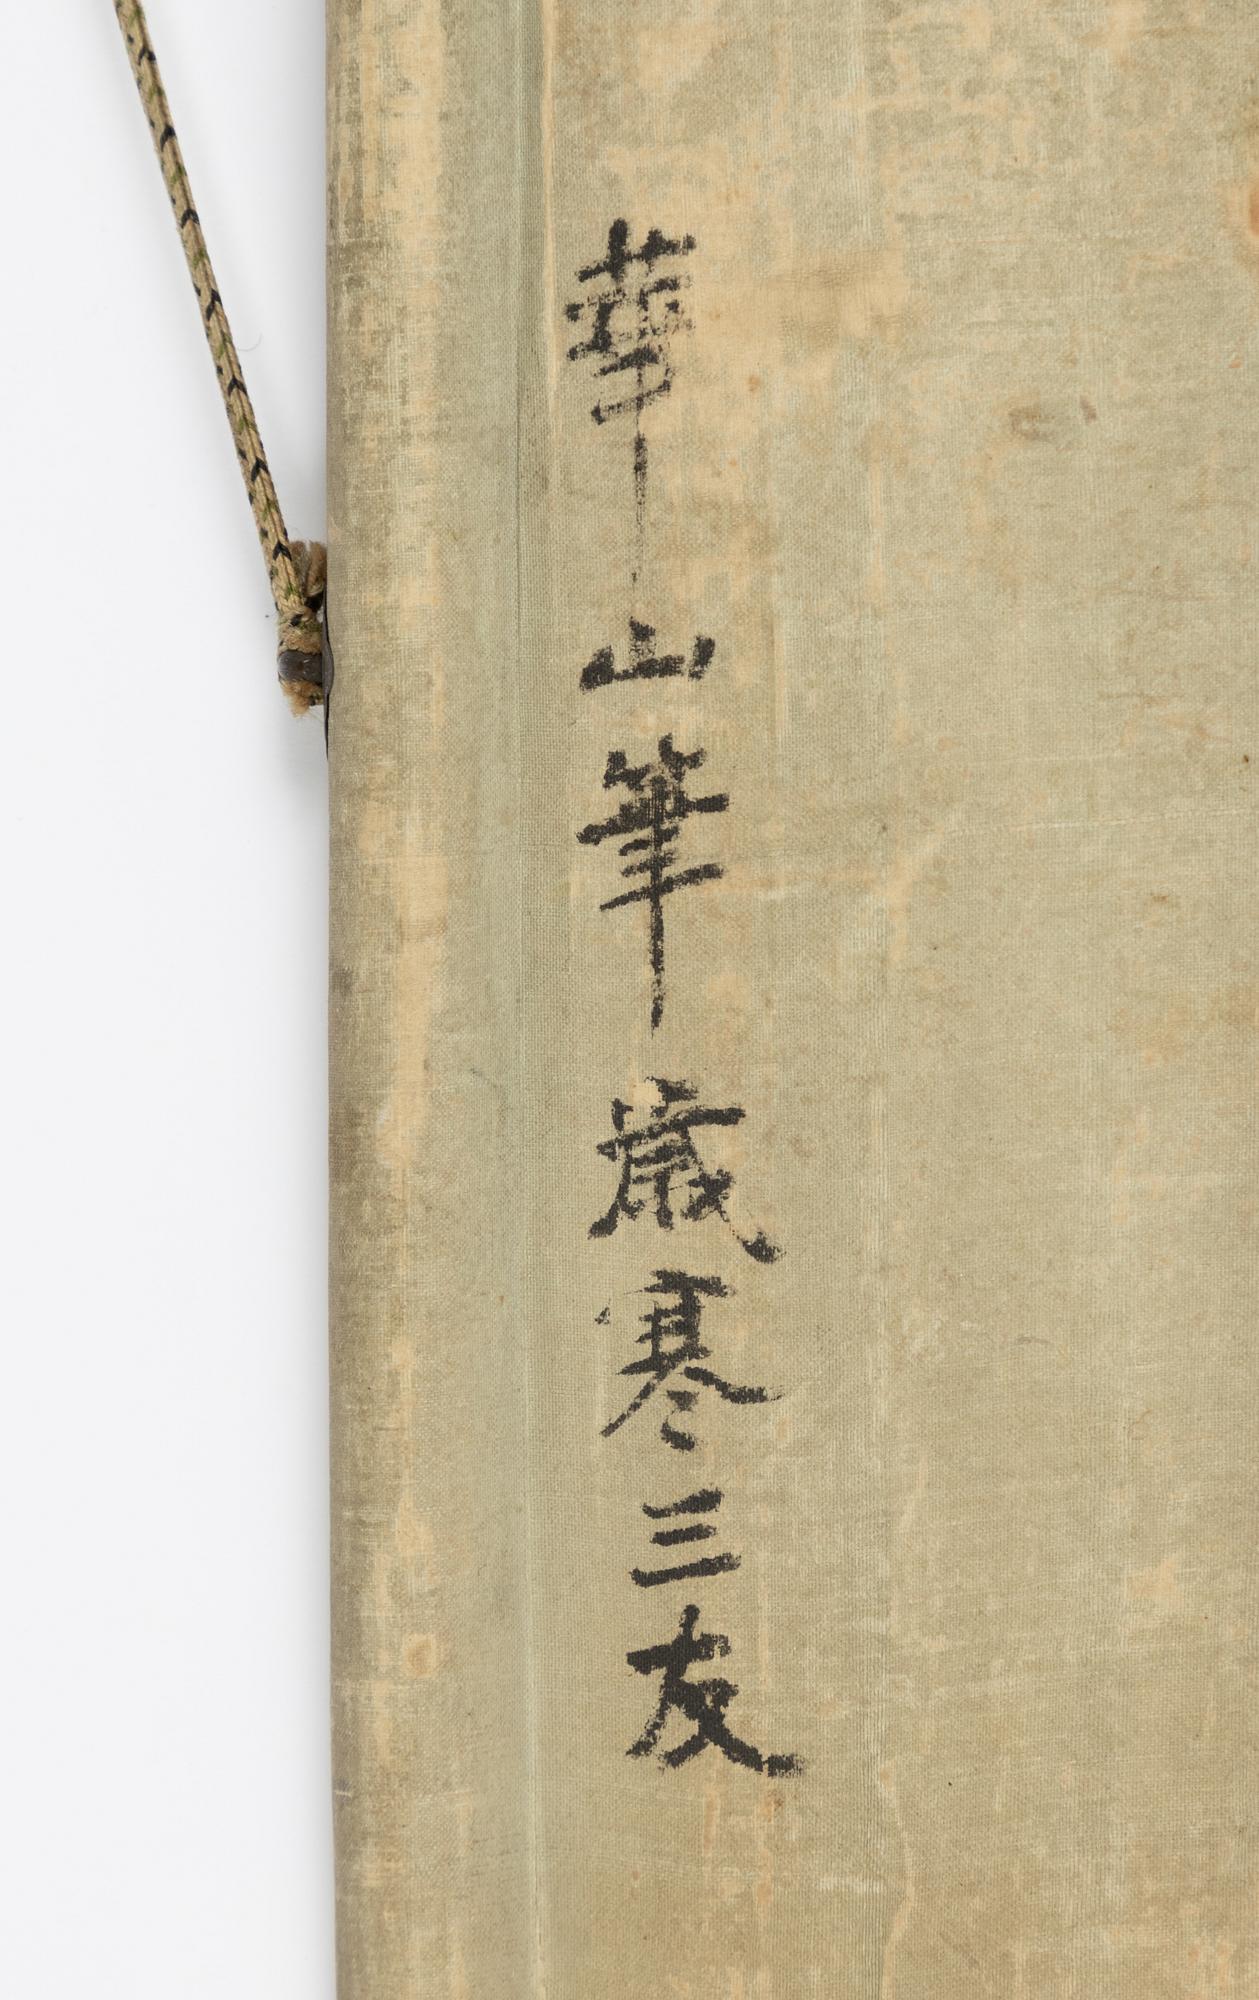 華山筆歳寒三友